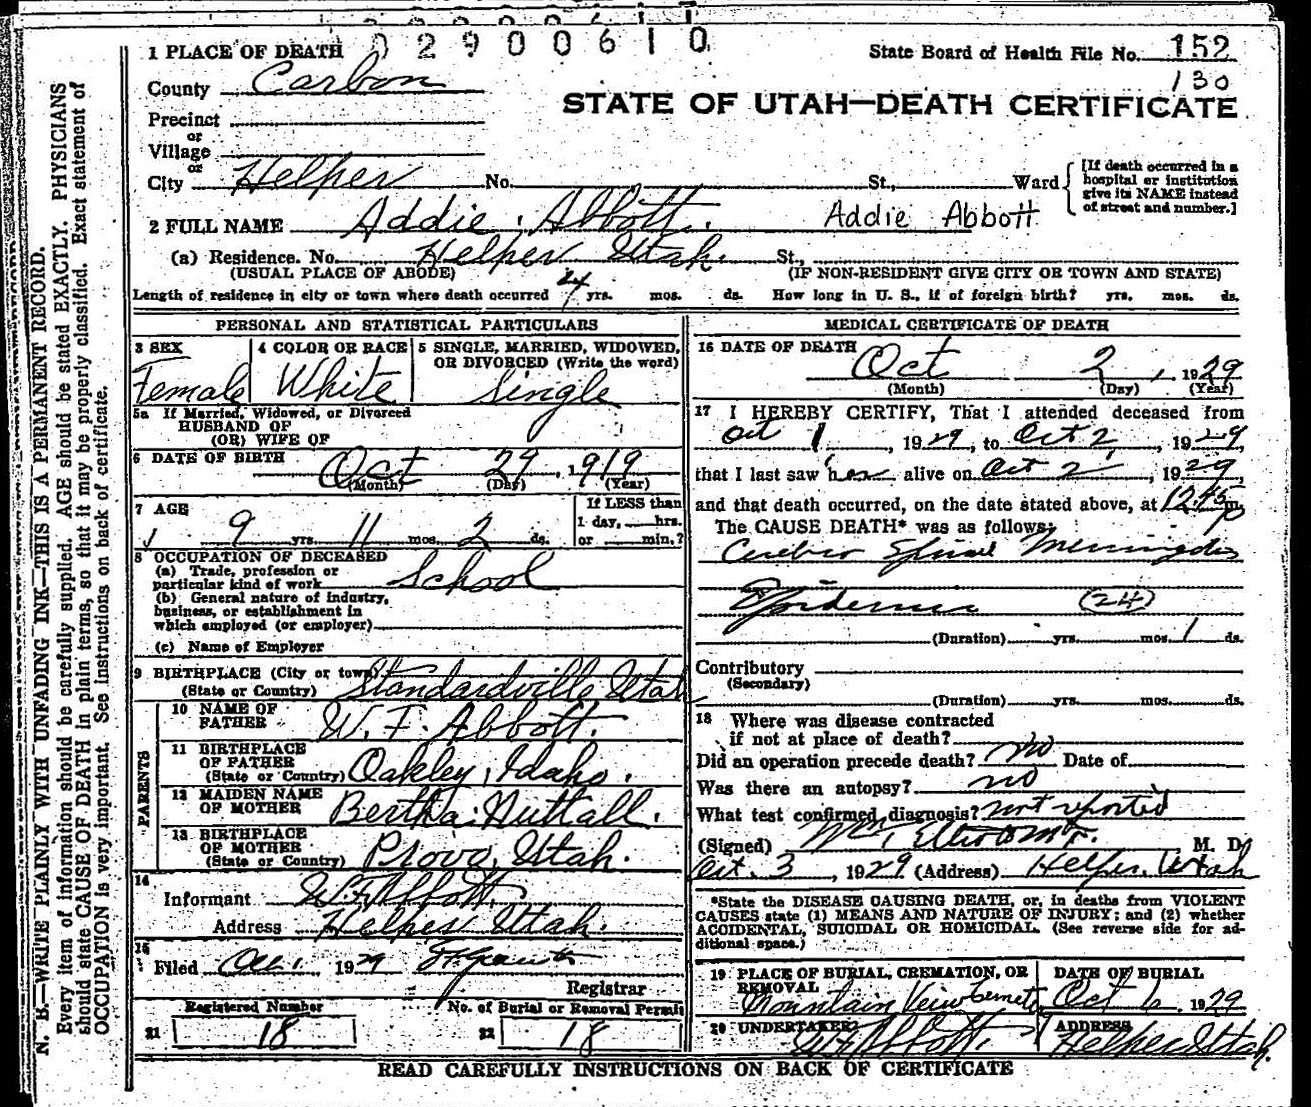 02900610
1 PLACE OF DEATH
State Board of Health File No. 152
130
County Carbon
STATE OF UTAH—DEATH CERTIFICATE
Precinct
or
Village
or
City Helper No. St., Ward
[If death occurred in a hospital or institution give its NAME instead of street and number.]
2 FULL NAME Addie Abbott. Addie Abbott
(a) Residence. No. Helper Utah. St.,
(USUAL PLACE OF ABODE) (IF NON-RESIDENT GIVE CITY OR TOWN AND STATE)
Length of residence in city or town where death occurred 4 yrs. mos. ds. How long in U. S., if of foreign birth? yrs. mos. ds.
PERSONAL AND STATISTICAL PARTICULARS
3 SEX
Female
4 COLOR OR RACE
White
5 SINGLE, MARRIED, WIDOWED,
OR DIVORCED (Write the word)
Single
5a If Married, Widowed, or Divorced
HUSBAND OF
(OR) WIFE OF
6 DATE OF BIRTH Oct 29, 1919
(Month) (Day) (Year)
7 AGE
9 yrs. 11 mos. 2 ds.
If LESS than
1 day, hrs.
or min.?
8 OCCUPATION OF DECEASED
(a) Trade, profession or
particular kind of work School
(b) General nature of industry,
business, or establishment in
which employed (or employer)
(c) Name of Employer
9 BIRTHPLACE (City or town) Standardville Utah
(State or Country)
PARENTS
10 NAME OF
FATHER W. F. Abbott.
11 BIRTHPLACE
OF FATHER
(State or Country) Oakley, Idaho.
12 MAIDEN NAME
OF MOTHER Bertha Nuttall.
13 BIRTHPLACE
OF MOTHER
(State or Country) Provo, Utah.
14
Informant W F Abbott.
Address Helper Utah.
15
Filed 1929
Registrar
Registered Number
21 18
No. of Burial or Removal Permit
22 18
MEDICAL CERTIFICATE OF DEATH
16 DATE OF DEATH
Oct 2, 1929
(Month) (Day) (Year)
17 I HEREBY CERTIFY, That I attended deceased from
Oct 1, 1929, to Oct 2, 1929,
that I last saw her alive on Oct 2, 1929
and that death occurred, on the date stated above, at 12:45 p m.
The CAUSE DEATH* was as follows:
Cerebro Spinal Meningitis
Epidemic (24)
(Duration) yrs. mos. 1 ds.
Contributory
(Secondary)
(Duration) yrs. mos. ds.
18 Where was disease contracted
if not at place of death?
Did an operation precede death? no Date of
Was there an autopsy? no
What test confirmed diagnosis? not reported
(Signed) M. D.
Oct. 3, 1929 (Address) Helper, Utah
*State the DISEASE CAUSING DEATH, or, in deaths from VIOLENT
CAUSES state (1) MEANS AND NATURE OF INJURY; and (2) whether
ACCIDENTAL, SUICIDAL OR HOMICIDAL. (See reverse side for ad-
ditional space.)
19 PLACE OF BURIAL, CREMATION, OR
REMOVAL
Mountain Veiw Cemetery
DATE OF BURIAL
Oct 6 1929
20 UNDERTAKER
W F Abbott.
ADDRESS
Helper Utah.
READ CAREFULLY INSTRUCTIONS ON BACK OF CERTIFICATE
N. B.—WRITE PLAINLY WITH UNFADING INK—THIS IS A PERMANENT RECORD.
Every item of information should be carefully supplied. AGE should be stated EXACTLY. PHYSICIANS
should state CAUSE OF DEATH in plain terms, so that it may be properly classified. Exact statement of
OCCUPATION is very important. See instructions on back of certificate.